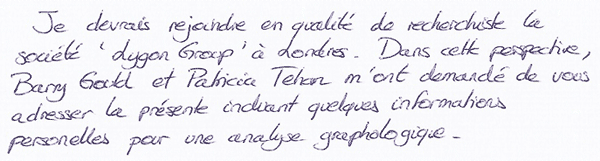 Je devrais rejoindre en qualité de recherchiste la
société 'Lygon Group' à Londres. Dans cette perspective,
Barry Gould et Patricia Tehan m'ont demandé de vous
adresser la présente incluant quelques informations
personelles pour une analyse graphologique.